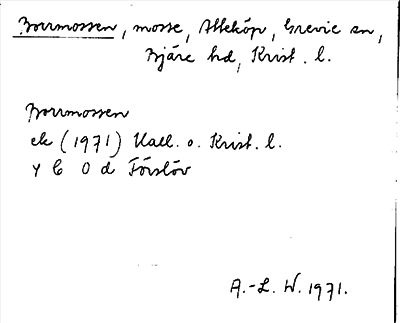 Borrmossen, mosse, Atteköp, Grevie sn,
Bjäre hd, Krist. l.
Borrmossen
ek (1971) Hall. o. Krist. l.
Y C 0 d Förslöv
A.-L. W. 1971.